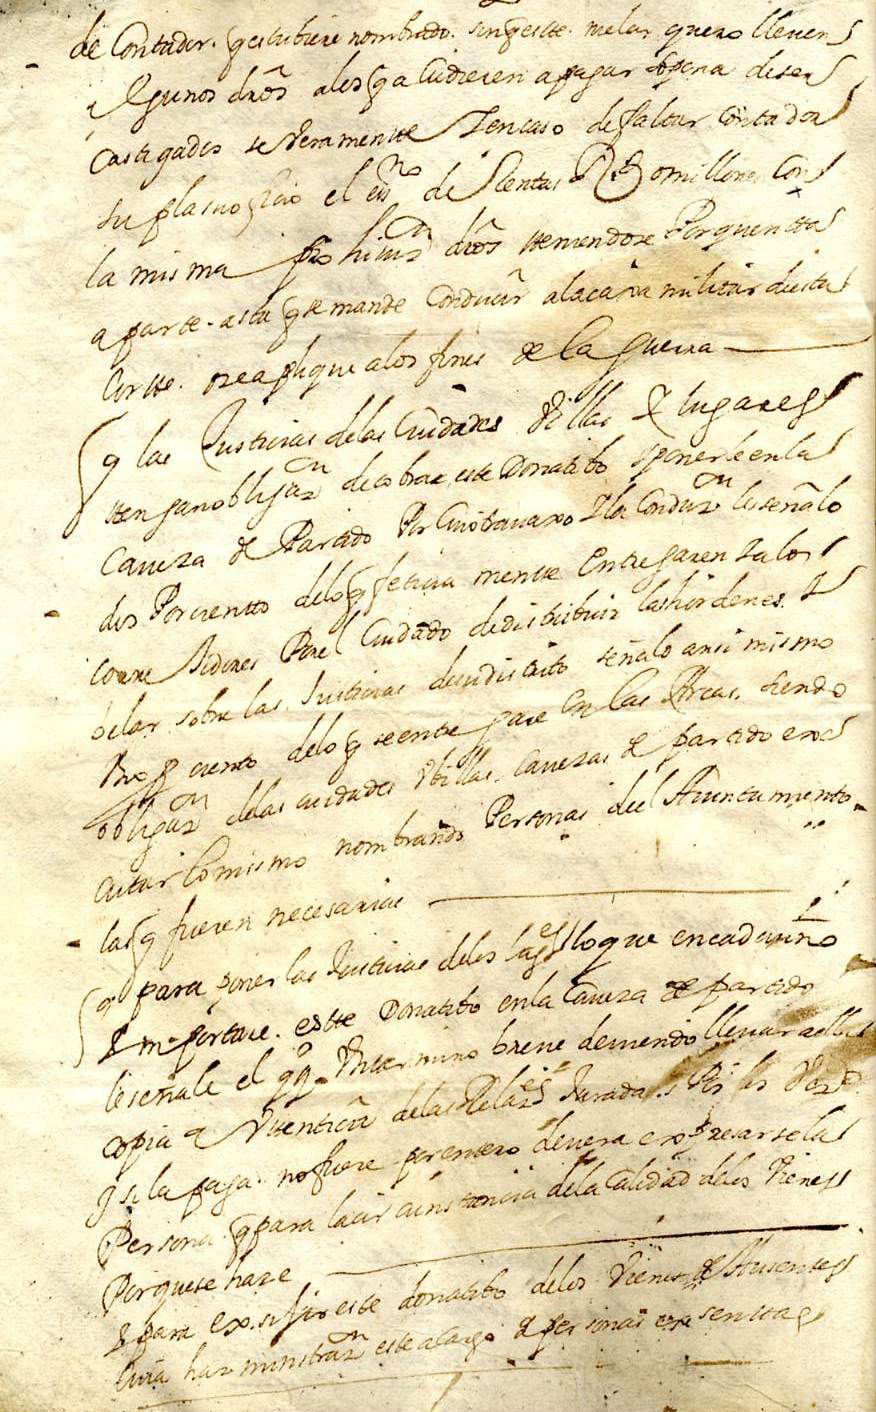 de Contador. q estubiere nombrado. sin q este. ni el arquero lleven
algunos dros a los q acudieren a pagar so pena de ser
castigados severamentte Y en caso de faltar Contador
supla su ofizio el essno de Rentas o Millones Con
la misma prohiuon dros tteniendose Por quentta
a parte. asta q se mande Conducir a la caxa militar desta
Cortte. o se aplique a los fines de la Guerra
q las Justicias de las Ciudades Villas Y lugares
ttengan obligazn de cobrar este Donatibo Y ponerle en la
Caueza de Partido Por Cuio trauaxo Y la Conduzn le señalo
dos Por cientto de lo q efetiua mentte Entregaren Y a los
corre xidores Por el Cuidado de distribuir las hordenes. Y
belar sobre las Justicias de su distrito señalo ansi mismo
Uno p ciento de lo q se entregare en las Arcas. siendo
obligazn de las ciudades Villas. Cauezas de partido exe
cutar lo mismo nombrando Personas del Aiuntamiento
las q fueren necesarias
q para poner las Justicias de los lugs lo que en cada uno
Ymportare. estte Donatibo en la Caueza de partido
le señale el Un termino breve deuiendo lleuar
copia autentica de las Relazes Juradas. de los Vezos
Y si la paga. no fuere por entero deuera expresarse la
Persona q para la circunstancia de la Calidad de los Vienes
Porque se haze
Y para exsijir este donatibo de los Vienes de Ausentes
Cuia haministrazn este a cargo de personas exsenttas